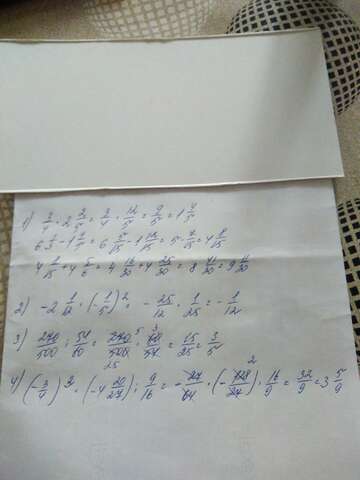 1) 3/4 · 2 2/5 = 3/4 · 12/5 = 9/5 = 1 4/5
6 1/3 - 1 4/5 = 6 5/15 - 1 12/15 = 5 - 7/15 = 4 8/15
4 8/15 + 4 5/6 = 4 16/30 + 4 25/30 = 8 41/30 = 9 11/30
2) -2 1/12 · (-1/5)² = -25/12 · 1/25 = -1/12
3) 270/500 : 54/60 = 270/500 · 60/54 = 15/25 = 3/5
4) (-3/4)³ · (-4 20/27) : 9/16 = -27/64 · (-128/27) · 16/9 = 32/9 = 3 5/9